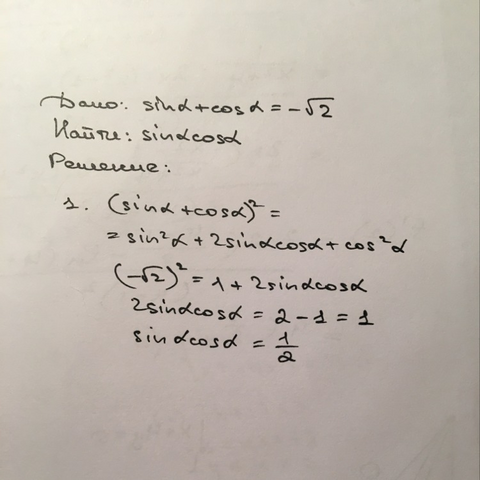 Дано: sinα + cosα = -√2
Найти: sinαcosα
Решение:
1. (sinα + cosα)² =
= sin²α + 2sinαcosα + cos²α
(-√2)² = 1 + 2sinαcosα
2sinαcosα = 2 - 1 = 1
sinαcosα = 1/2